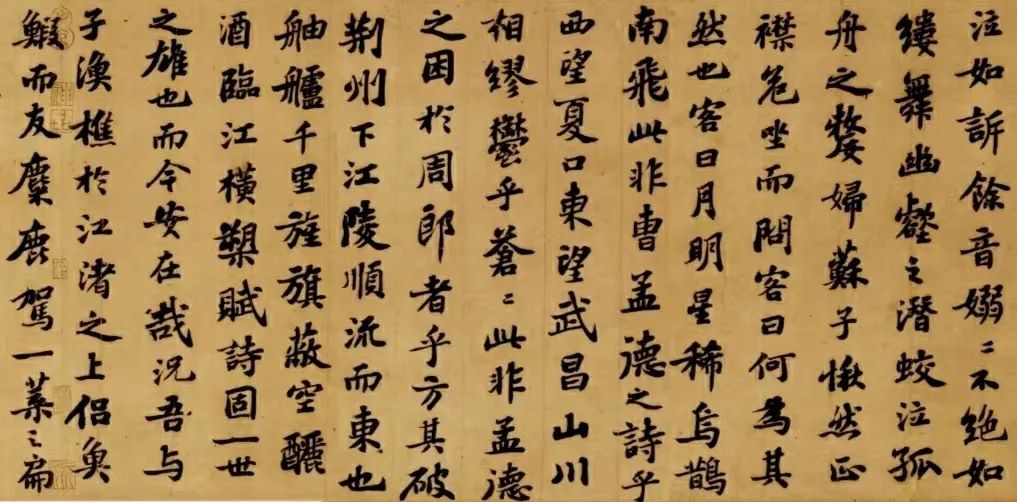 泣如訴餘音嫋〻不絕如
縷舞幽壑之潛蛟泣孤
舟之嫠婦蘇子愀然正
襟危坐而問客曰何為其
然也客曰月明星稀烏鵲
南飛此非曹孟德之詩乎
西望夏口東望武昌山川
相繆鬱乎蒼〻此非孟德
之困於周郎者乎方其破
荊州下江陵順流而東也
舳艫千里旌旗蔽空釃
酒臨江橫槊賦詩固一世
之雄也而今安在哉況吾與
子漁樵於江渚之上侶魚
鰕而友麋鹿駕一葉之扁